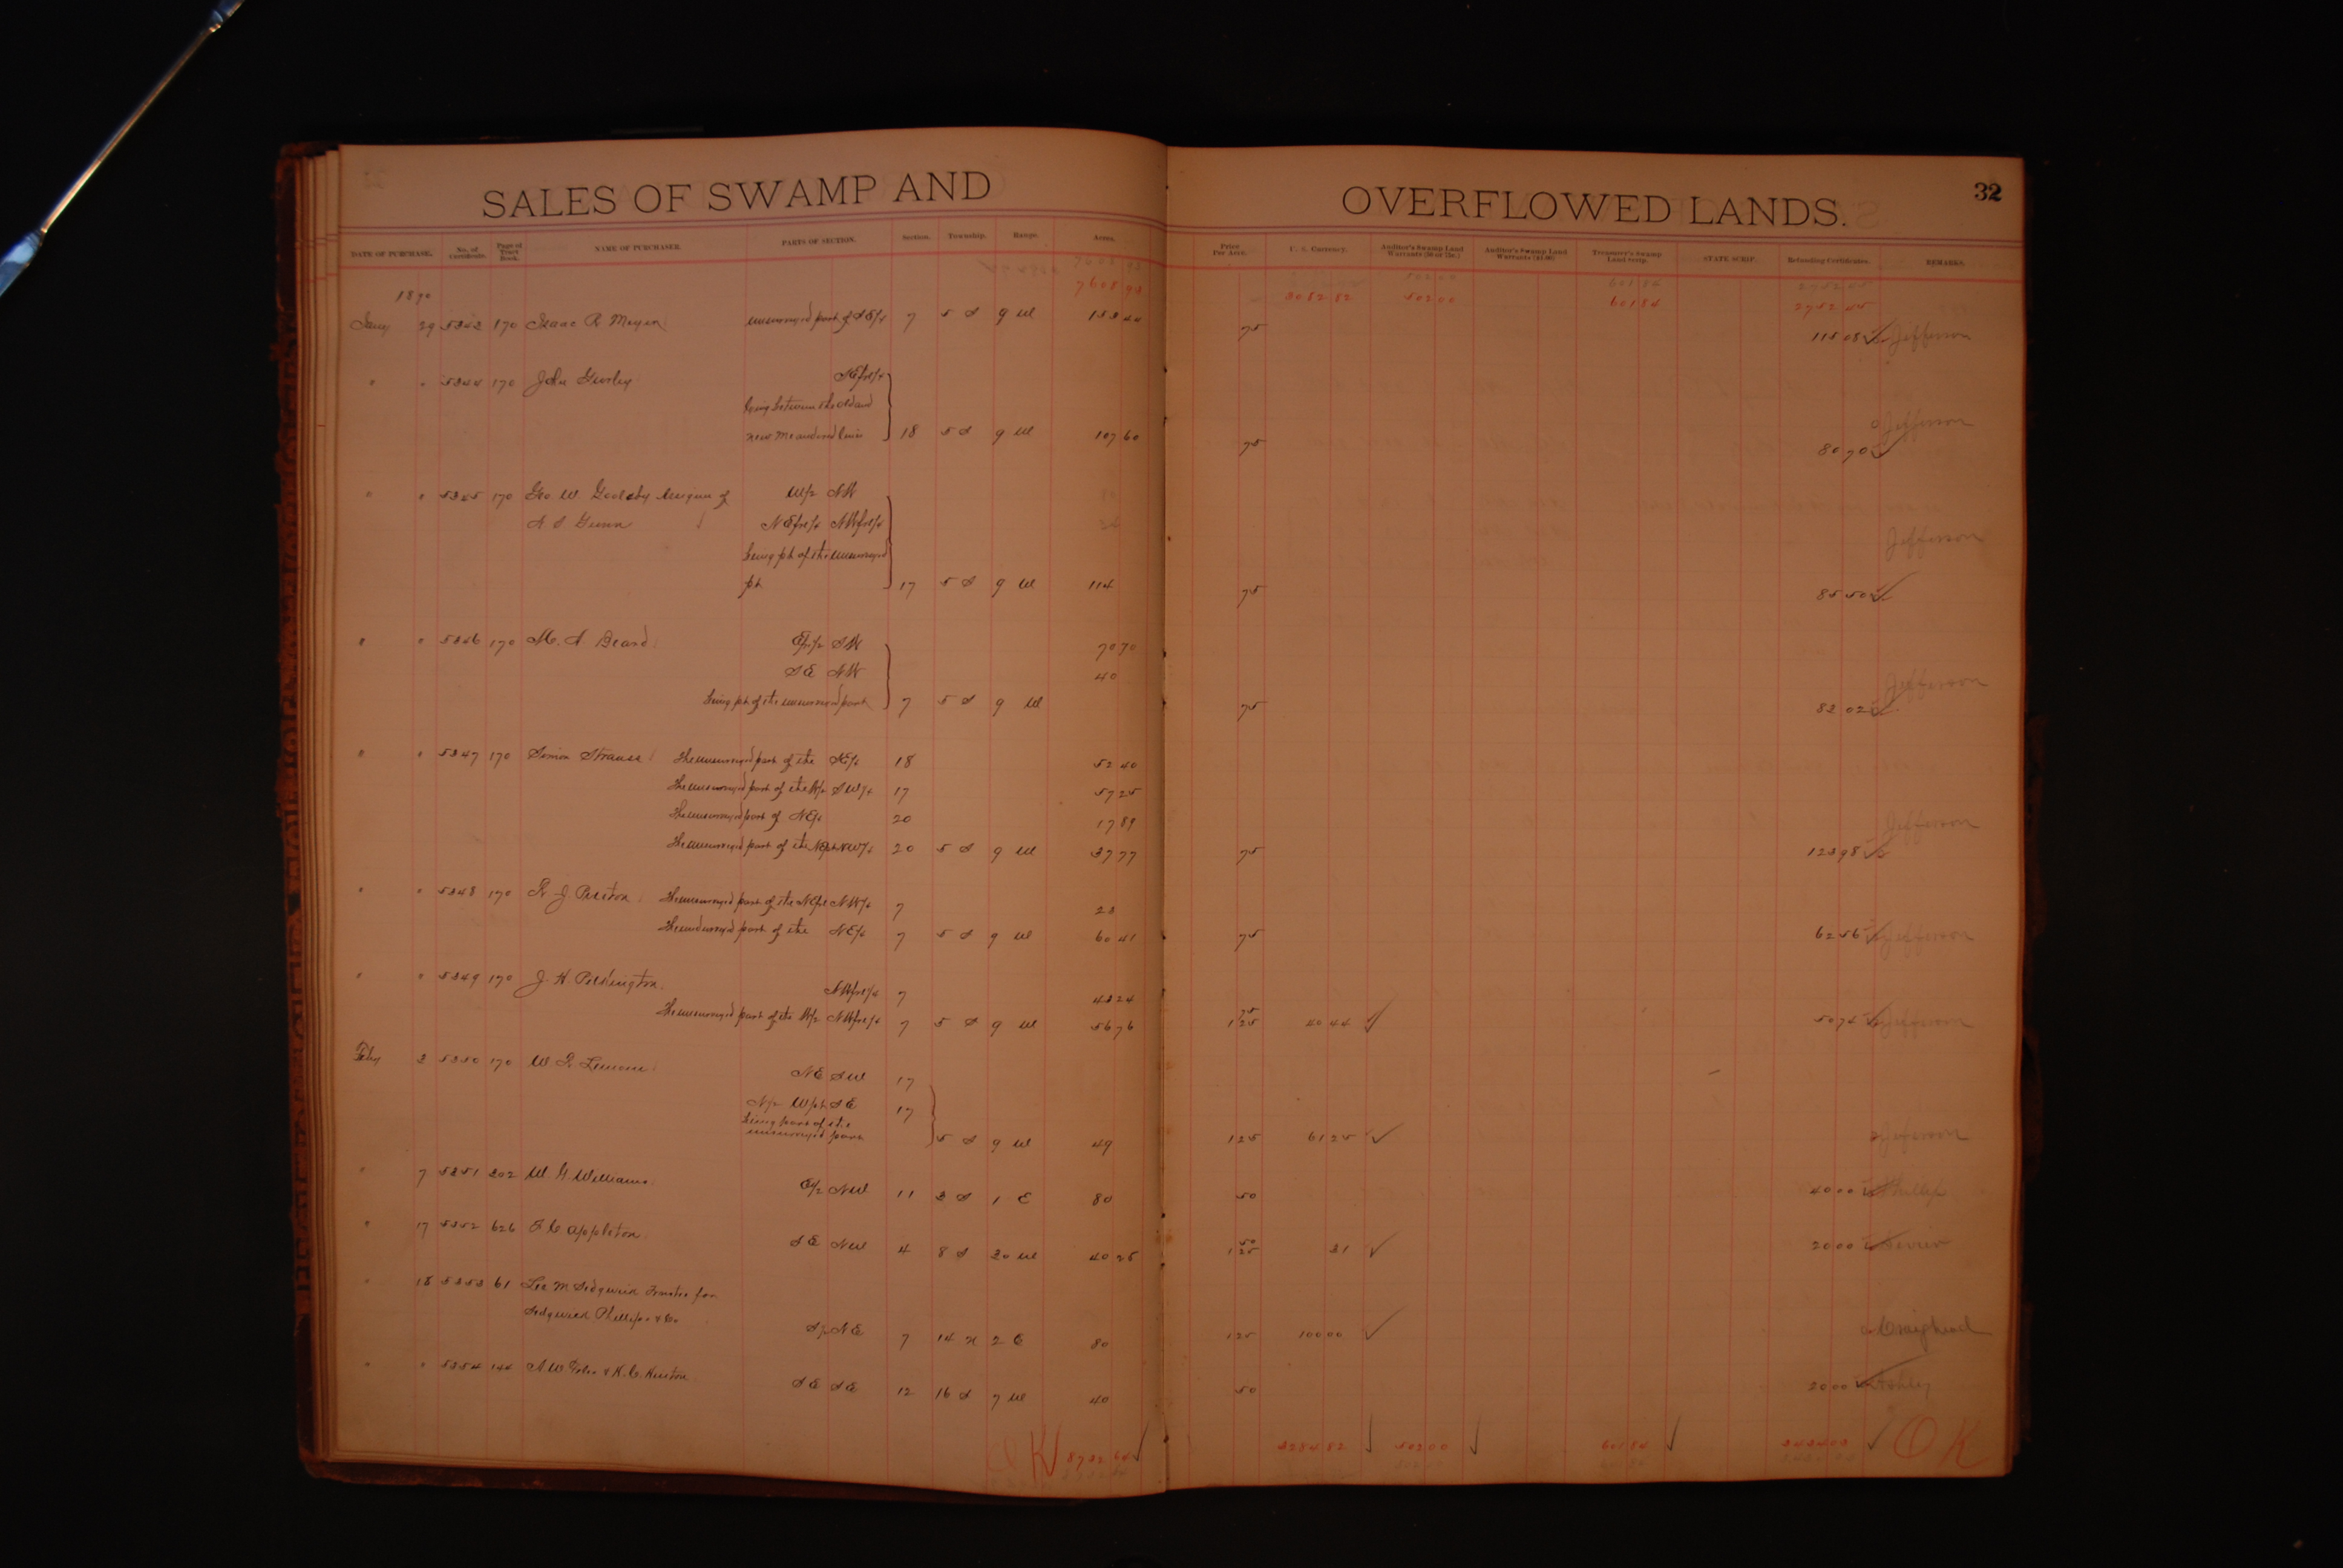 SALES OF SWAMP AND OVERFLOWED LANDS. 32
DATE OF PURCHASE. No. of Certificate. Page of Tract Book. NAME OF PURCHASER. PARTS OF SECTION. Section. Township. Range. Acres. Price Per Acre. U. S. Currency. Auditor's Swamp Land Warrants (50 or 75c.) Auditor's Swamp Land Warrants ($1.00) Treasurer's Swamp Land Scrip. STATE SCRIP. Refunding Certificates. REMARKS.
7608 93 3082 82 502 00 601 84 2752 45
1890
Jany 29 5343 170 Isaac R Meyer unsurveyed part of SE/4 7 5 S 9 W 153 44 75 115 08 Jefferson
" " 5344 170 John Gurley NE frl/4
being between the old and
new meandered lines 18 5 S 9 W 107 60 75 80 70 Jefferson
" " 5345 170 Geo. W. W/2 NW
A S Gunn NE frl/4 NW frl/4
being pt of the unsurveyed
pt 17 5 S 9 W 114 75 85 50 Jefferson
" " 5346 170 M. A. Beard SW 70 70
SE NW 40
being pt of the unsurveyed part 7 5 S 9 W 75 83 02 Jefferson
" " 5347 170 Simon Strauss The unsurveyed part of the NE/4 18 52 40
The unsurveyed part of the W/2 SW/4 17 57 25
The unsurveyed part of NE/4 20 17 89
The unsurveyed part of the NW/4 20 5 S 9 W 37 77 75 123 98 Jefferson
" " 5348 170 The unsurveyed part of the NW/4 7 23
The unsurveyed part of the NE/4 7 5 S 9 W 60 41 75 62 56 Jefferson
" " 5349 170 J. H. Pilkington NW frl/4 7 43 24
The unsurveyed part of the W/2 NW frl/4 7 5 S 9 W 56 76 75 1 25 40 44 50 74 Jefferson
Feby 3 5350 170 NE SW 17
SE 17
being part of the
unsurveyed part 5 S 9 W 49 1 25 61 25 Jefferson
" 7 5351 302 Williams E/2 NW 11 3 S 1 E 80 50 40 00 Phillips
" 17 5352 626 Appleton SE NW 4 8 S 30 W 40 25 50 1 25 31 20 00 Sevier
" 18 5353 61 Lee M Sedgwick Trustee for
Sedgwick Phillips & Co
S/2 NE 7 14 N 2 E 80 1 25 100 00 Craighead
" " 5354 144 SE SE 12 16 S 7 W 40 50 20 00 Ashley
OK 8732 64 3284 82 502 00 601 84 3434 03 OK